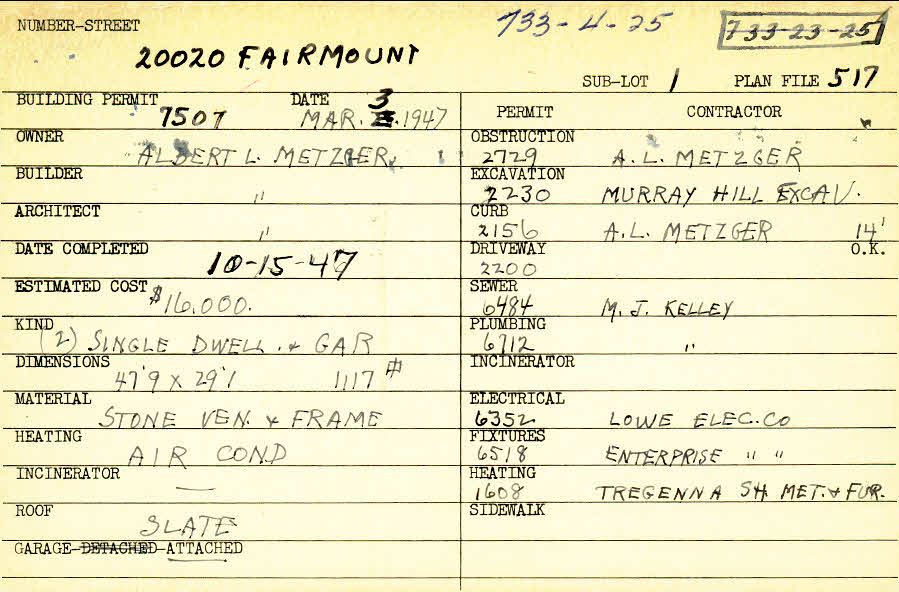 NUMBER-STREET 733-4-25 733-23-25
20020 FAIRMOUNT
SUB-LOT 1 PLAN FILE 517
BUILDING PERMIT 7507 DATE MAR. 3 1947
OWNER ALBERT L. METZGER
BUILDER "
ARCHITECT "
DATE COMPLETED 10-15-47
ESTIMATED COST $16,000.
KIND (2) SINGLE DWELL. & GAR
DIMENSIONS 47'9 X 29'1 1117 #
MATERIAL STONE VEN. & FRAME
HEATING AIR COND
INCINERATOR —
ROOF SLATE
GARAGE-DETACHED-ATTACHED
PERMIT CONTRACTOR
OBSTRUCTION 2729 A.L. METZGER
EXCAVATION 2230 MURRAY HILL EXCAV.
CURB 2156 A.L. METZGER 14'
DRIVEWAY 2200 O.K.
SEWER 6484 M. J. KELLEY
PLUMBING 6712 "
INCINERATOR
ELECTRICAL 6352 LOWE ELEC. CO
FIXTURES 6518 ENTERPRISE " "
HEATING 1608 TREGENNA SH. MET. & FUR.
SIDEWALK